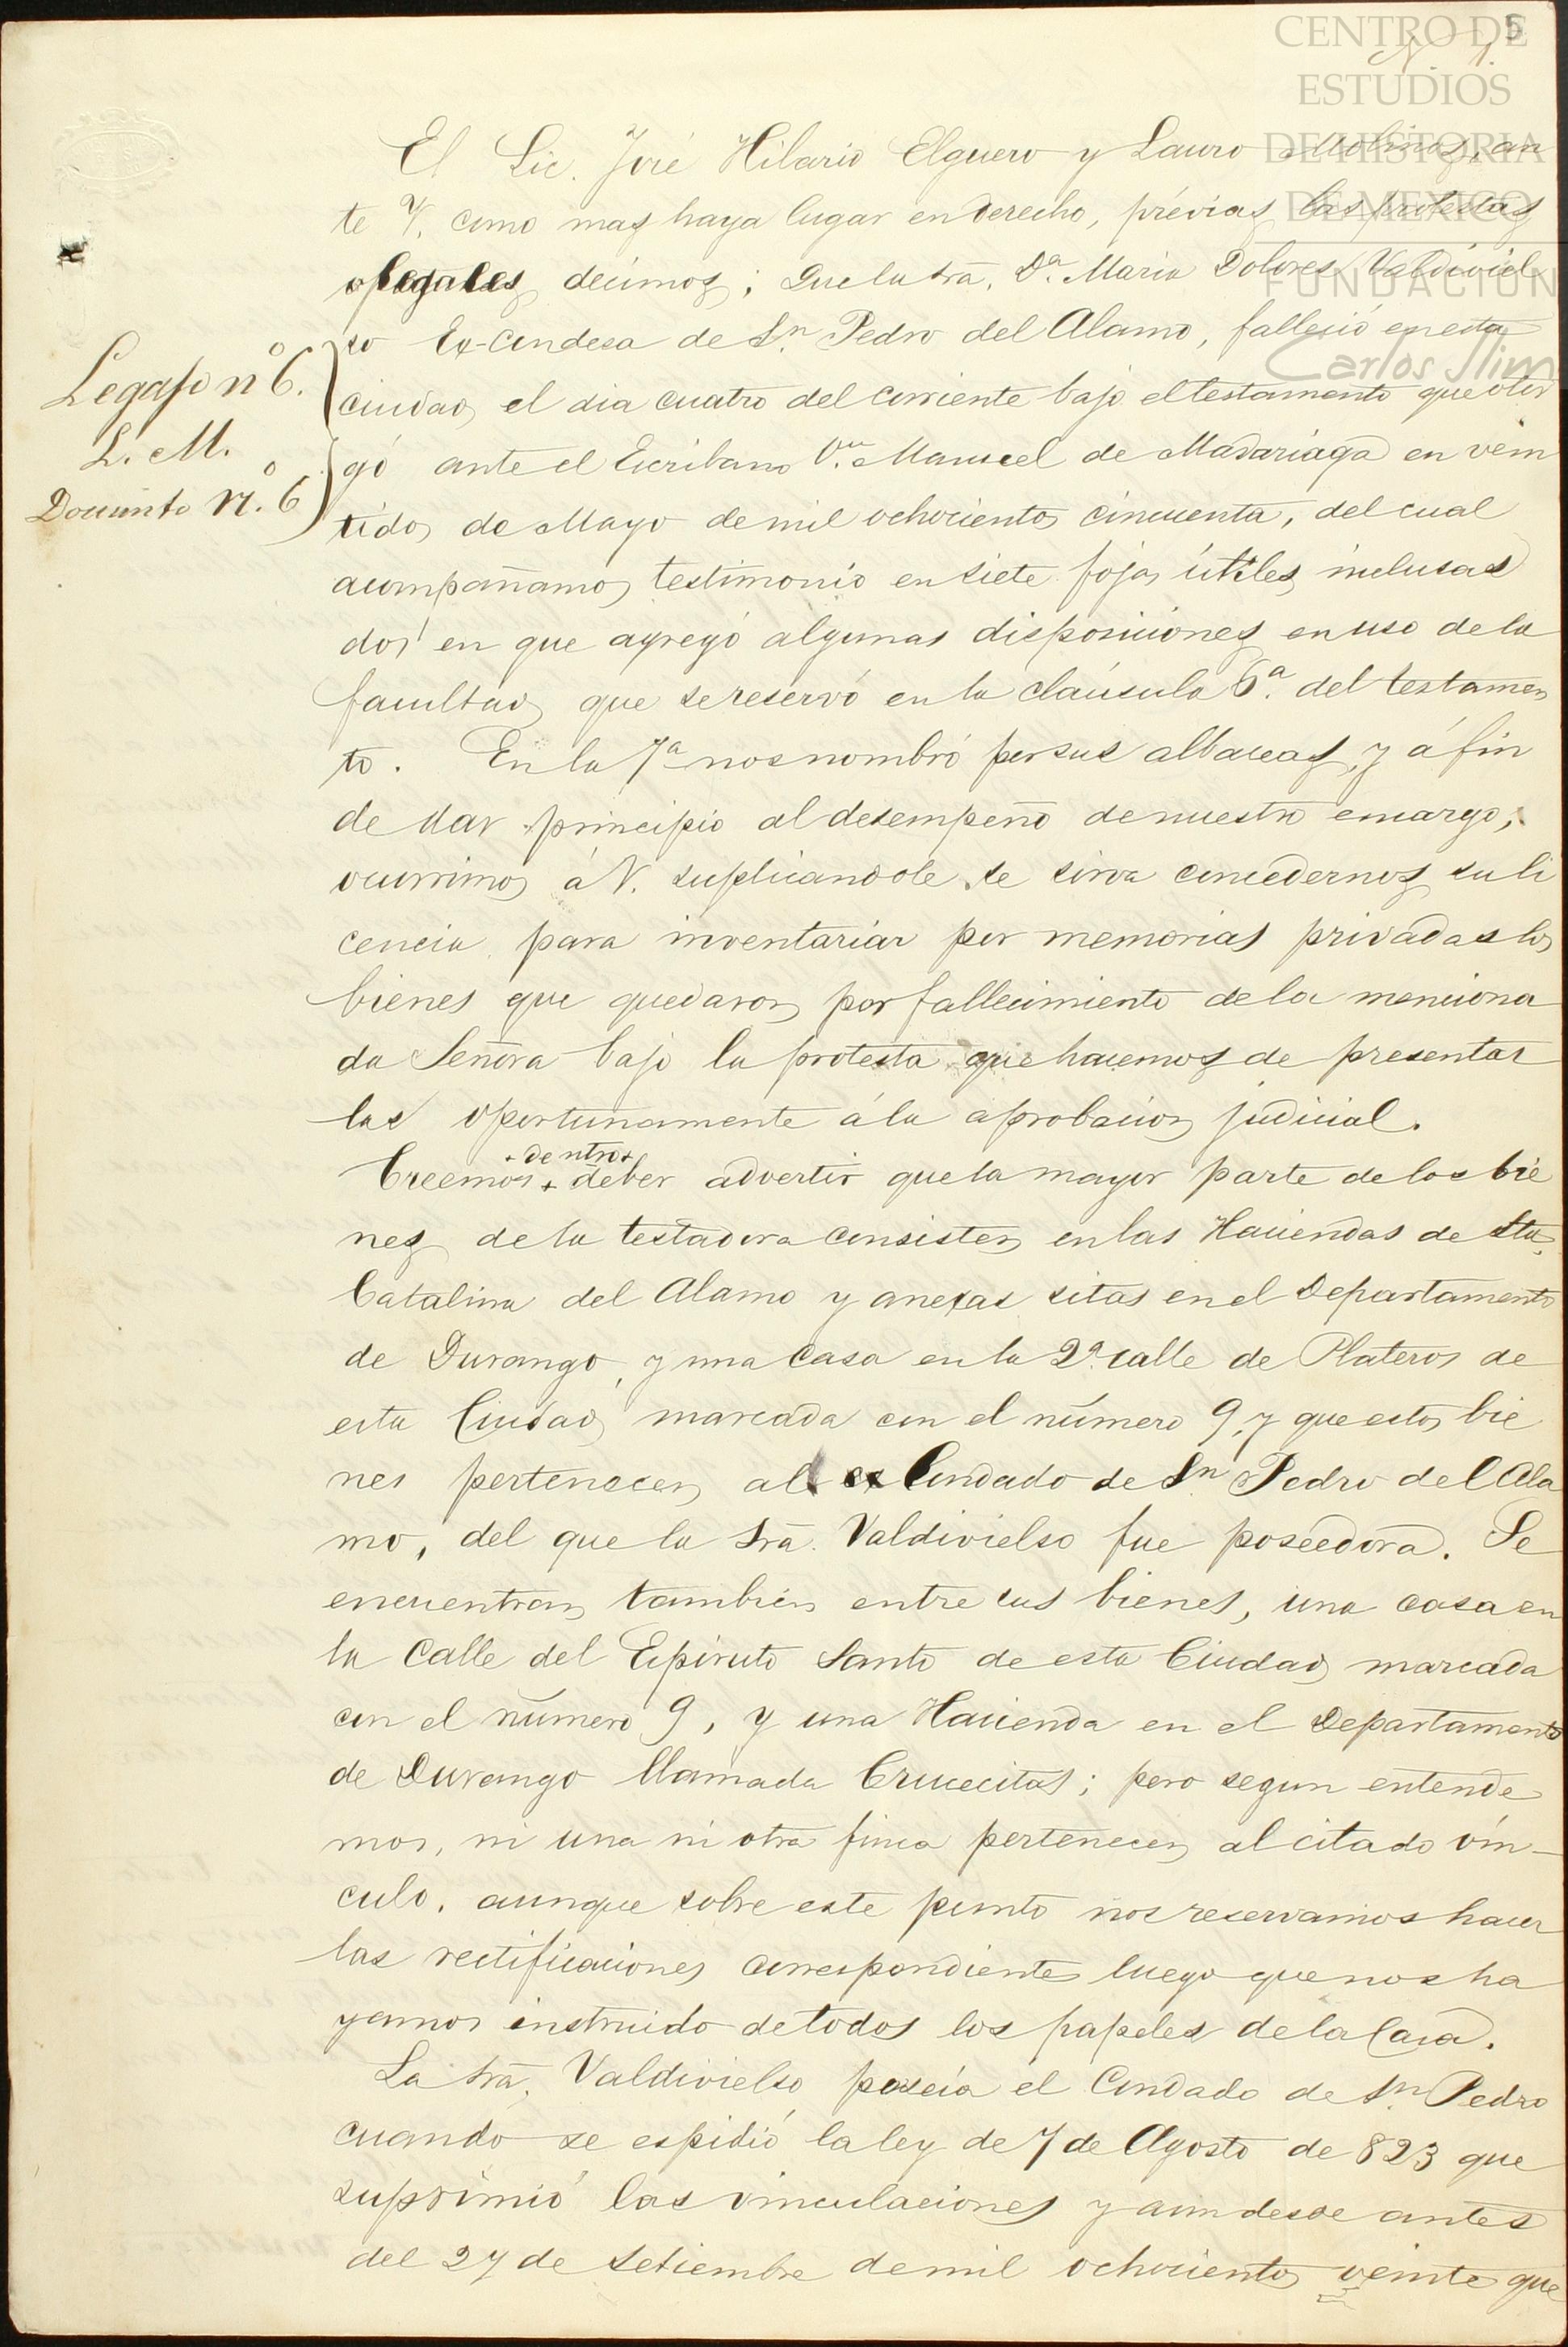 5
CENTRO DE
ESTUDIOS
DE HISTORIA
DE MEXICO
FUNDACION
Carlos Slim
Legajo nº 6.
L. M.
Documto N.º 6
El Lic. José Hilario Elguero y Lauro Molinos, an
te V. como mas haya lugar en derecho, prévias las protestas
legales decimos; Que la Srā. Dª Maria Dolores Valdiviel
so Ex-Condesa de Sn. Pedro del Alamo, fallesió en esta
ciudad el dia cuatro del corriente bajo el testamento que otor
gó ante el Escribano Dn. Manuel de Madariaga en vein
tidos de Mayo de mil ochocientos cincuenta, del cual
acompañamos testimonio en siete fojas útiles inclusas
dos en que agregó algunas disposiciones en uso de la
facultad que se reservó en la claúsula 6ª. del testamen
to. En la 7ª nos nombró por sus albaceas, y á fin
de dar principio al desempeño de nuestro encargo,
ocurrimos á V. suplicandole se sirva concedernos su li
cencia para inventariar por memorias privadas los
bienes que quedaron por fallecimiento de la menciona
da Señora bajo la protesta que hacemos de presentar
las oportunamente á la aprobacion judicial.
+dentro+
Creemos + deber advertir que la mayor parte de los bie
nes de la testadora consisten en las Haciendas de Sta.
Catalina del Alamo y anexas sitas en el Departamento
de Durango, y una Casa en la 2ª calle de Plateros de
esta Ciudad marcada con el número 9, y que estos bie
nes pertenecen al ex Condado de Sn Pedro del Ala
mo, del que la Srā. Valdivielso fue poseedora. Se
encuentran tambien entre sus bienes, una casa en
la Calle del Espirutu Santo de esta Ciudad marcada
con el número 9, y una Hacienda en el Departamento
de Durango llamada Crucecitas; pero segun entende
mos, ni una ni otra finca pertenecen al citado vín-
culo, aunque sobre este punto nos reservamos hacer
las rectificaciones correspondientes luego que nos ha
yamos instruido de todos los papeles de la Casa.
La Srā. Valdivielso poseía el Condado de Sn. Pedro
cuando se espidió la ley de 7 de Agosto de 823 que
suprimió las vinculaciones y aun desde antes
del 27 de Setiembre de mil ochocientos veinte que